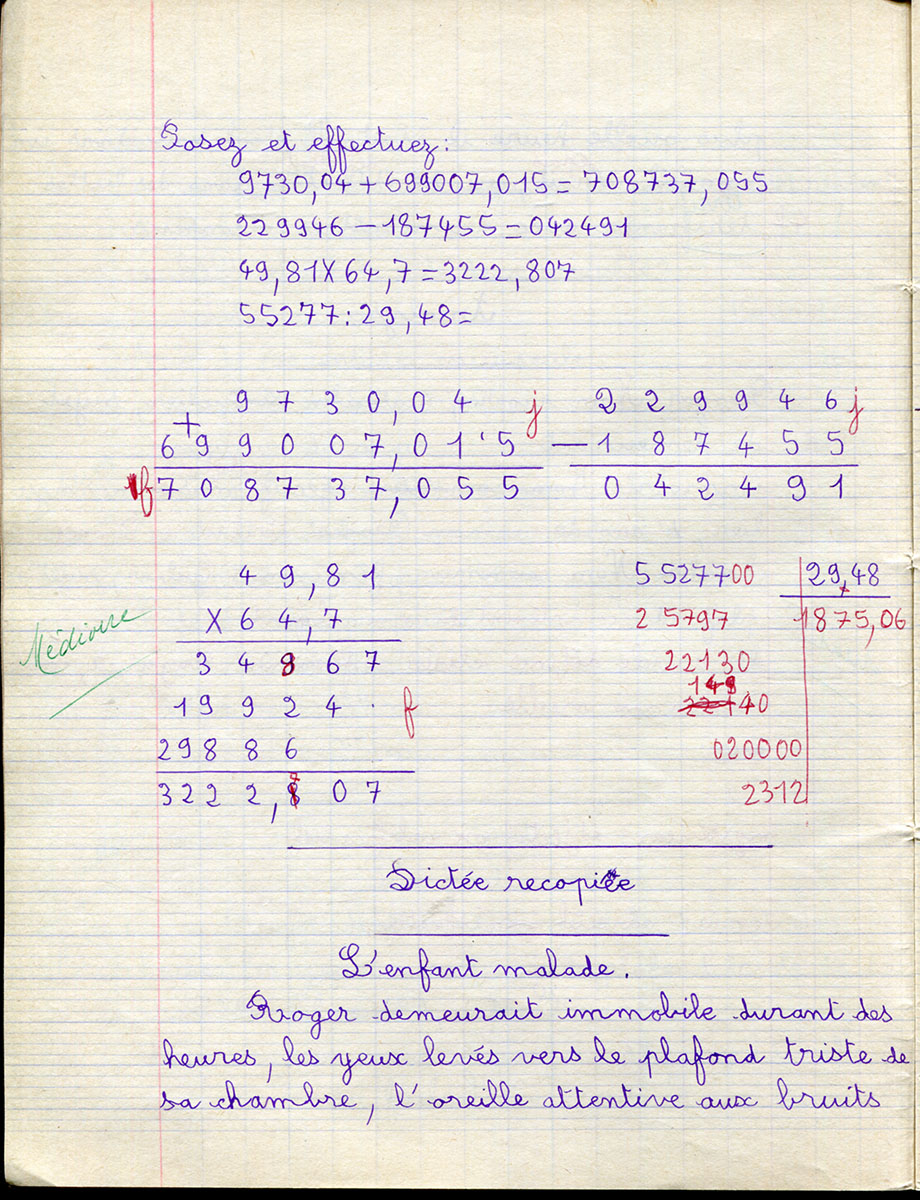 Posez et effectuez :
9730,04 + 699007,015 = 708737,055
229946 - 187455 = 042491
49,81 X 64,7 = 3222,807
55277 : 29,48 =
9 7 3 0,0 4 j
+
6 9 9 0 0 7,0 1 5
f 7 0 8 7 3 7,0 5 5
2 2 9 9 4 6 j
- 1 8 7 4 5 5
0 4 2 4 9 1
4 9,8 1
X 6 4,7
3 4 8 6 7
1 9 9 2 4 . f
2 9 8 8 6
3 2 2 2,7 0 7
Médiocre
5 527700 29,48
2 5797 1875,06
22130
149
40
020000
2312
Dictée recopiée
L'enfant malade.
Roger demeurait immobile durant des
heures, les yeux levés vers le plafond triste de
sa chambre, l'oreille attentive aux bruits